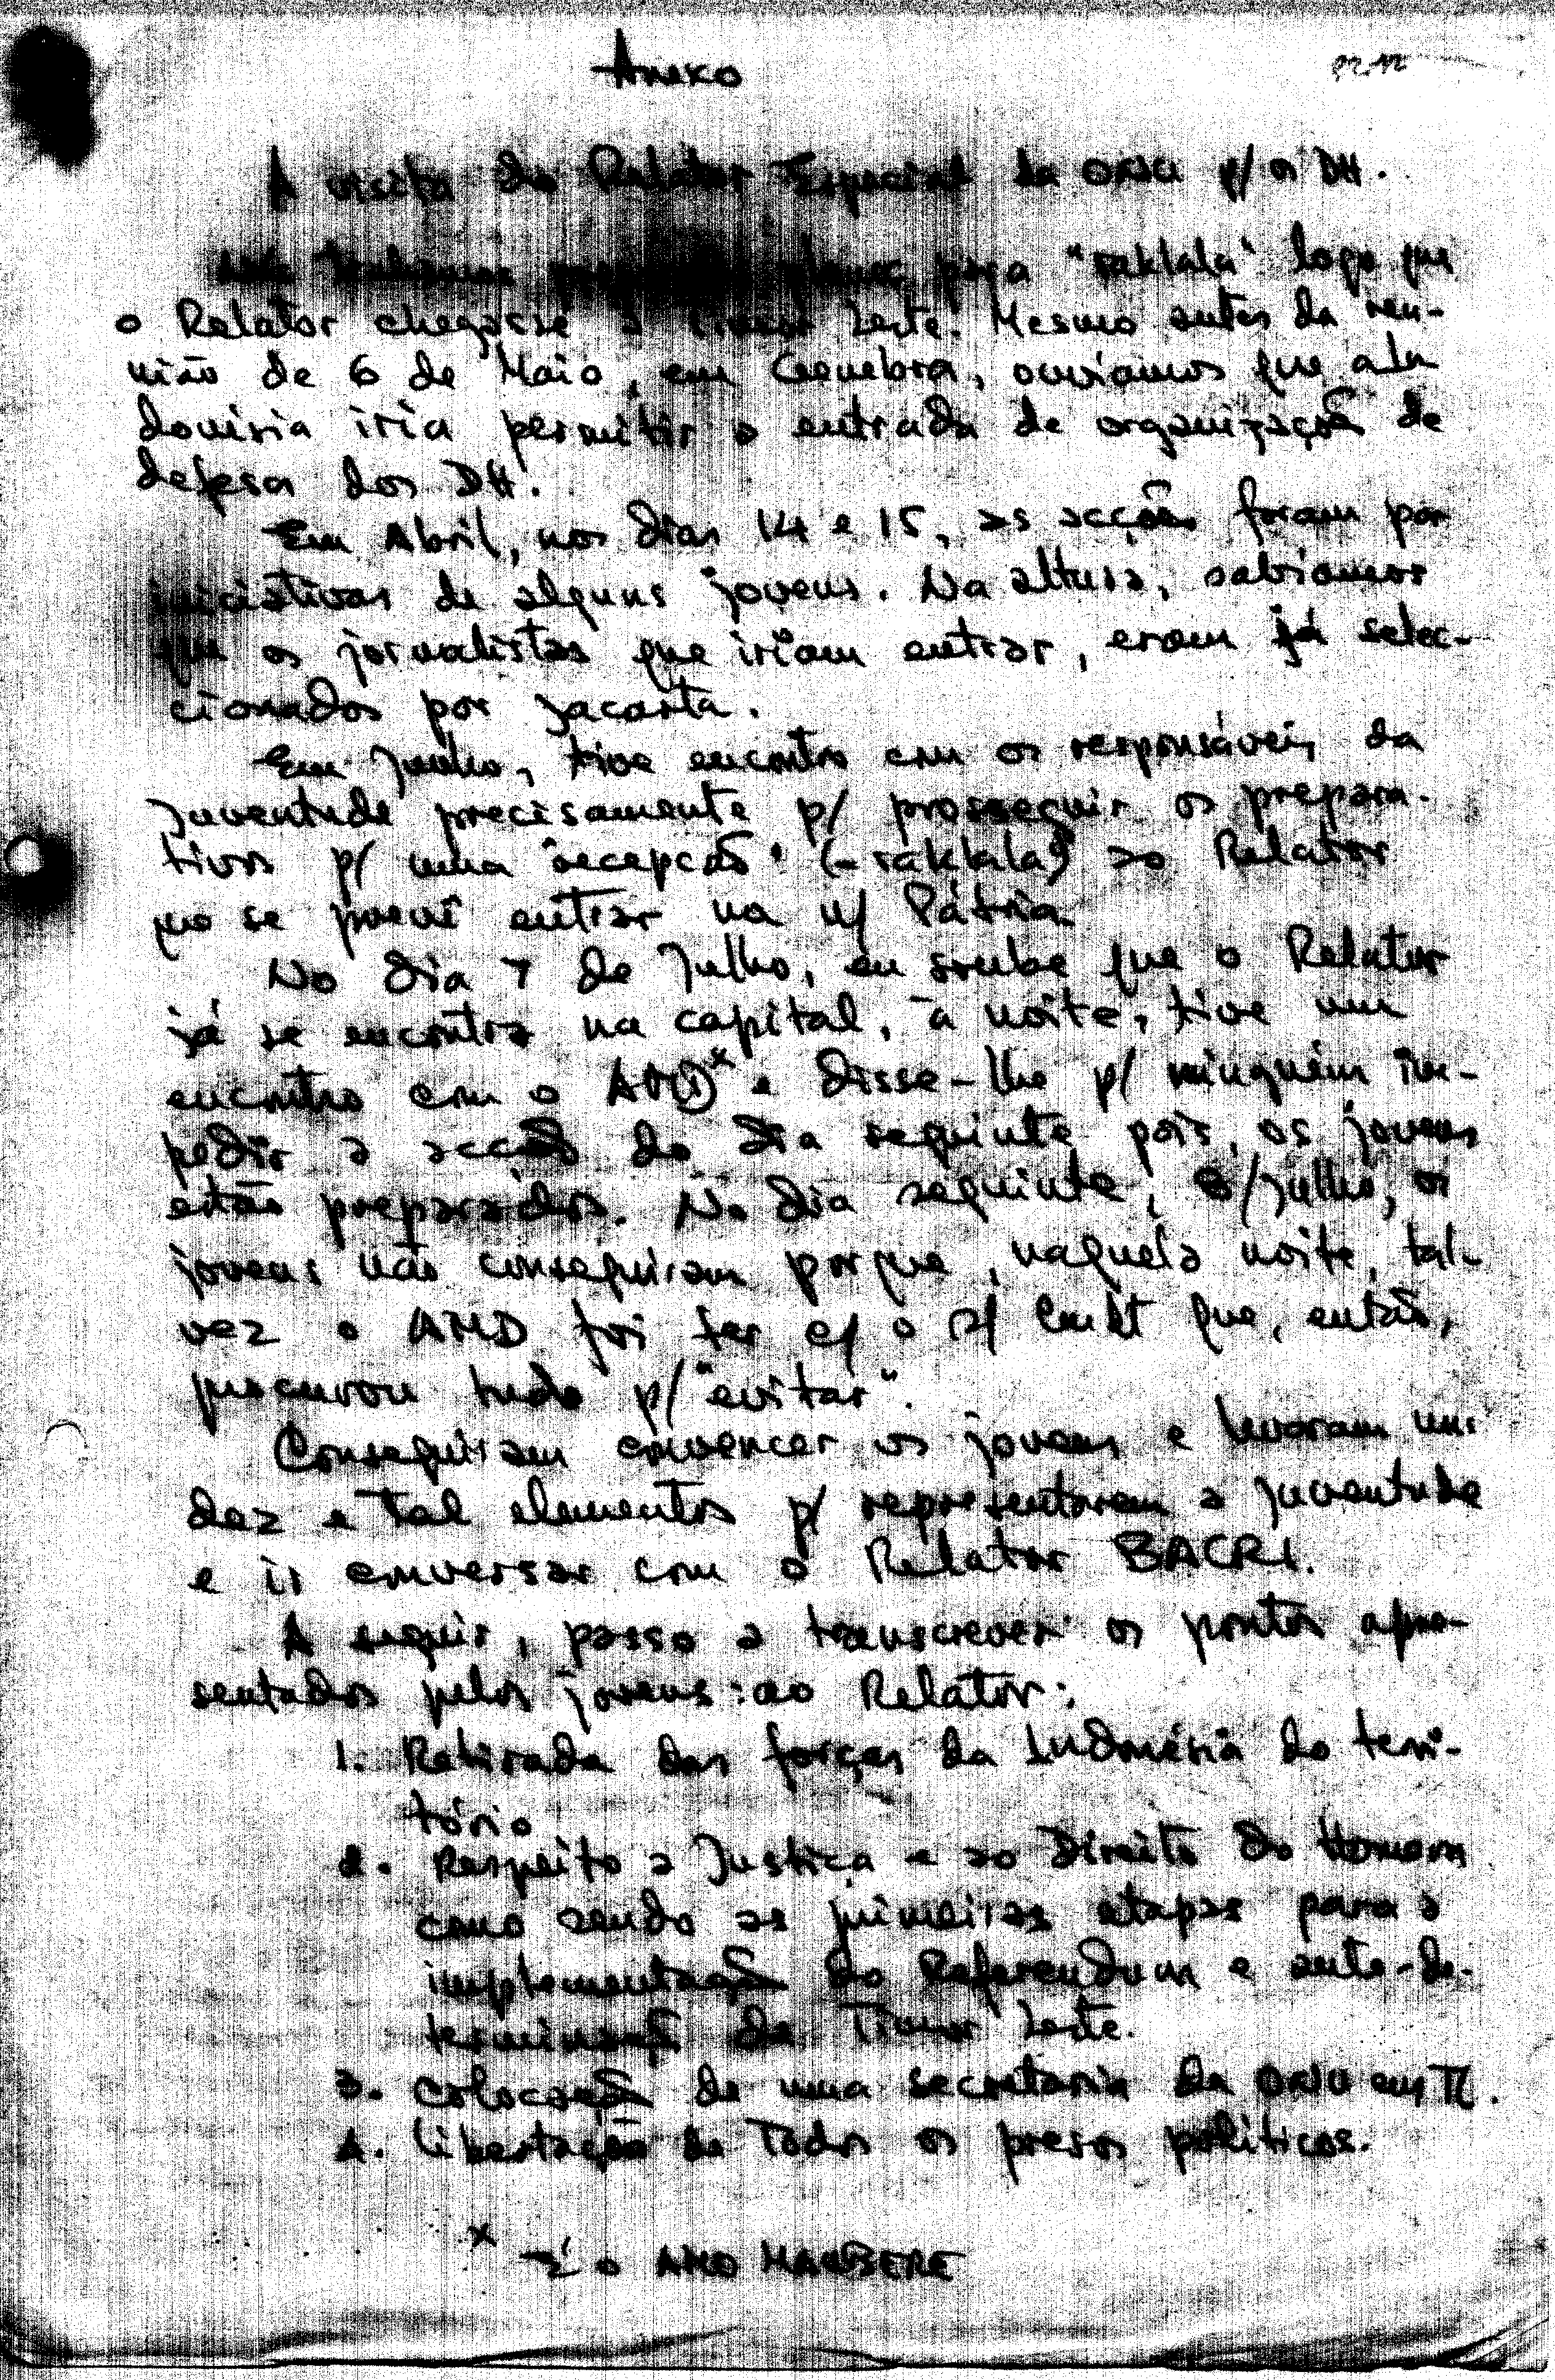 Anexo
A visita do Relator Especial da ONU p/ os DH.
para "raklala" logo que
o Relator chegasse a Timor Leste. Mesmo antes da reu-
nião de 6 de Maio, em Genebra, ouvíamos que a In
donésia iria permitir a entrada de organizações de
defesa dos DH.
Em Abril, nos dias 14 e 15, as acções foram por
iniciativas de alguns jovens. Na altura, sabíamos
que os jornalistas que iriam entrar, eram já selec-
cionados por Jacarta.
Em Junho, tive encontro com os responsáveis da
Juventude precisamente p/ prosseguir os prepara-
tivos p/ uma "recepção" (= raklala) ao Relator
que se prevê entrar na n/ Pátria.
No dia 7 de Julho, eu soube que o Relator
já se encontra na capital, à noite, tive um
encontro com o AMD* e disse-lhe p/ ninguém im-
pedir a acção do dia seguinte pois, os jovens
estão preparados. No dia seguinte, 8/Julho, os
jovens não conseguiram porque, naquela noite, tal-
vez o AMD foi ter c/ o que, então,
procurou tudo p/ "evitar".
Conseguiram convencer os jovens e levaram uns
dez e tal elementos p/ representarem a juventude
e ir conversar com o Relator BACRI.
A seguir, passo a transcrever os pontos apre-
sentados pelos jovens ao Relator:
1. Retirada das forças da Indonésia do terri-
tório
2. Respeito a Justiça e ao Direito do Homem
como sendo as primeiras etapas para a
implementação do Referendum e auto-de-
terminação de Timor Leste.
3. Colocação de uma secretaria da ONU em TL.
4. Libertação de Todos os presos políticos.
* É o AMD MAUBERE